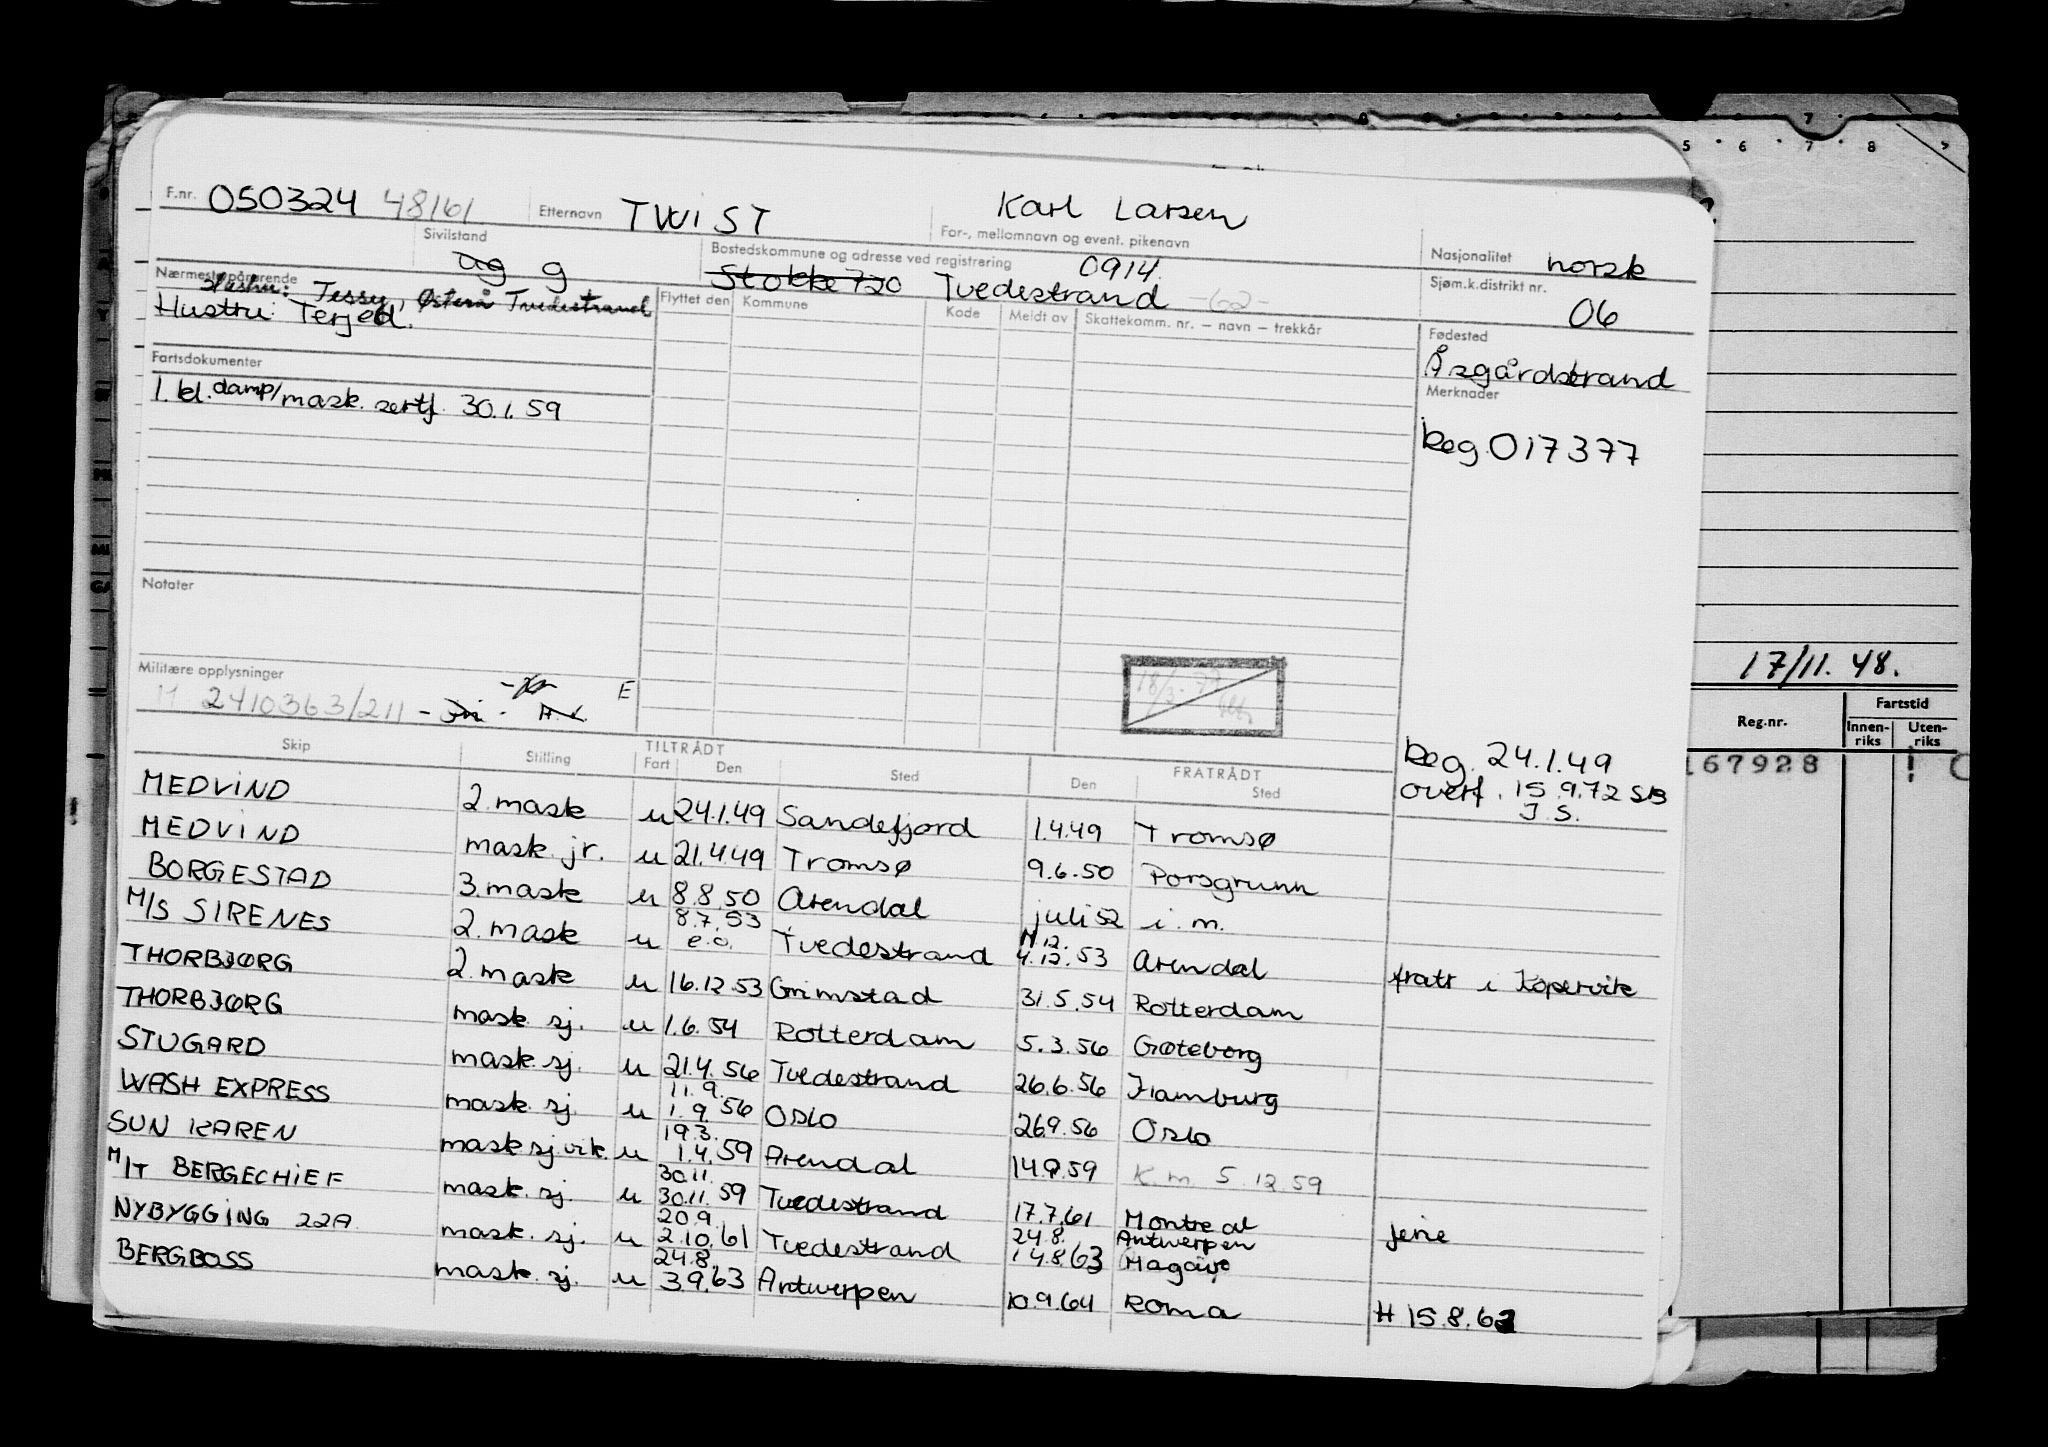 F.nr. 050324 48161 Etternavn TWIST Karl Larsen
For-, mellomnavn og event. pikenavn
Sivilstand ug g
Bostedskommune og adresse ved registrering 0914.
Stokke 720 Tvedestrand -62-
Nasjonalitet norsk
Sjøm.k.distrikt nr. 06
Nærmeste pårørende
Hustru: Jessy, Østerå Tvedestrand
Hustru: Terjed.
Flyttet den Kommune Kode Meldt av Skattekomm. nr. — navn — trekkår
Fødested
Åsgårdstrand
Fartsdokumenter
1. kl. damp/mask. sertf. 30.1.59
Merknader
beg. 017377
Notater
Militære opplysninger
M 2410363/211 - E
18/3. 77
beg. 24.1.49
overf. 15.9.72 SB
J.S.
Skip Stilling TILTRÅDT Fart Den Sted FRATRÅDT Den Sted
MEDVIND 2. mask u 24.1.49 Sandefjord 1.4.49 Tromsø
MEDVIND mask jr. u 21.4.49 Tromsø 9.6.50 Porsgrunn
BORGESTAD 3. mask u 8.8.50 Arendal juli 52 i. m.
M/S SIRENES 2. mask u 8.7.53 e.o. Tvedestrand 4.12.53 Arendal fratr i Kopervik
THORBJØRG 2. mask u 16.12.53 Grimstad 31.5.54 Rotterdam
THORBJØRG mask. sj. u 1.6.54 Rotterdam 5.3.56 Gøteborg
STUGARD mask. sj. u 21.4.56 Tvedestrand 26.6.56 Hamburg
WASH EXPRESS mask. sj. u 11.9. 1.9.56 Oslo 26.9.56 Oslo
SUN KAREN mask sj. vik. u 19.3. 1.4.59 Arendal 14.9.59 K.m. 5.12.59
M/T BERGECHIEF mask. sj. u 30.11. 30.11.59 Tvedestrand 17.7.61 Montreal ferie
NYBYGGING 22A mask. sj. u 20.9. 2.10.61 Tvedestrand 24.8. 14.8.63 Antwerpen
BERGBOSS mask. sj. u 24.8. 3.9.63 Antwerpen 10.9.64 Roma H 15.8.63
5 6 7 8
17/11. 48.
Reg.nr. Fartstid
Innen-riks Uten-riks
167928